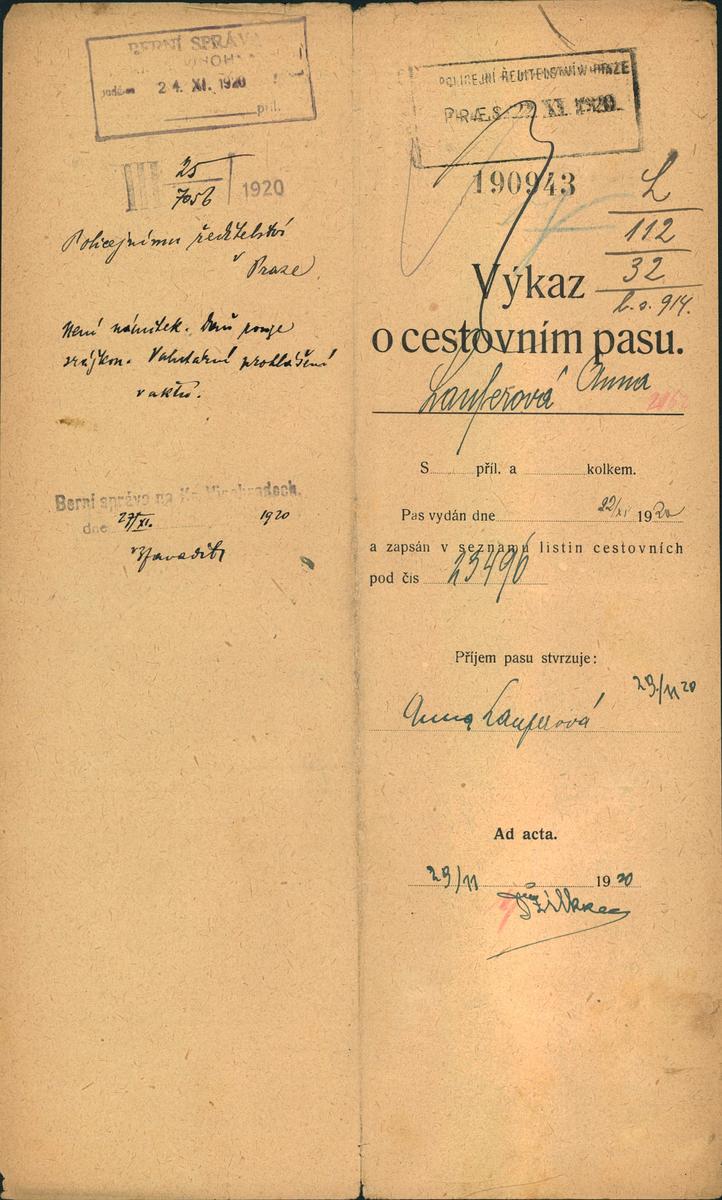 BERNÍ SPRÁVA
24. XI. 1920
příl.
III 25/7056 1920
Policejnímu ředitelství
v Praze
Není námitek. Daň pouze
srážkou. Valutární prohlášení
v aktu.
Berní správa na Kr. Vinohradech,
dne 27/XI. 1920
POLICEJNÍ ŘEDITELSTVÍ V PRAZE
PRÆS. 22 XI. 1920
190943
L
112
32
b. s. 914.
Výkaz
o cestovním pasu.
Lauferová Anna
S příl. a kolkem.
Pas vydán dne 22/XI 1920
a zapsán v seznamu listin cestovních
pod čís 23496
Příjem pasu stvrzuje:
29/11 20
Anna Lauferová
Ad acta.
29/11 1920